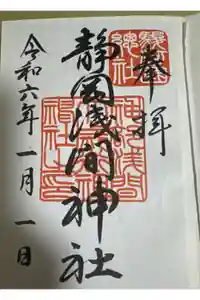 奉拝
静岡浅間神社
令和六年一月一日